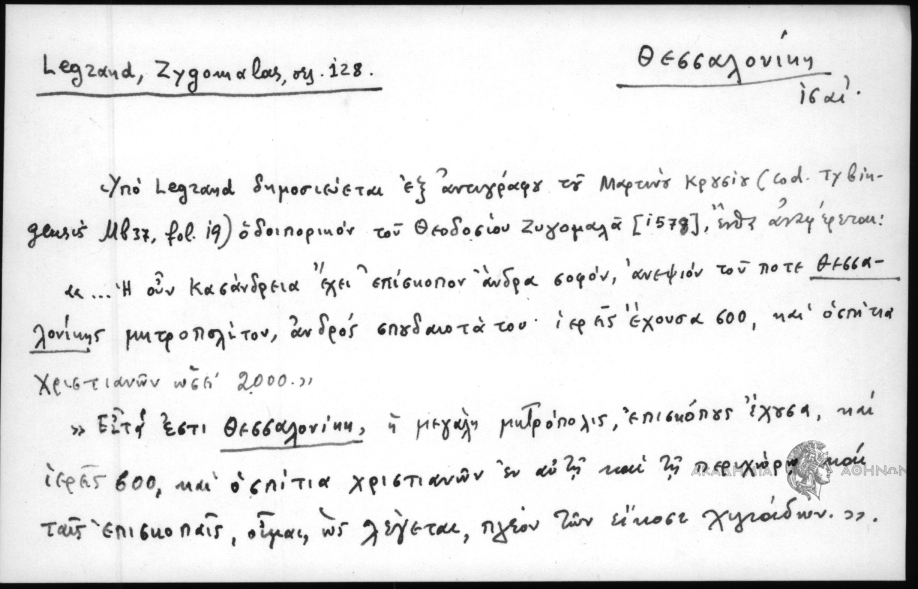 Legrand, Zygomalas, σελ. 128.
Θεσσαλονίκη
ις αἰ.
«Ὑπό Legrand δημοσιεύεται ἐξ ἀντιγράφου τοῦ Μαρτίνου Κρουσίου (cod. Tybin-
gensis Mb37, fol. 19) ὁδοιπορικόν τοῦ Θεοδοσίου Ζυγομαλᾶ [1578], ἔνθα ἀναφέρεται:
«... Ἡ οὖν Κασάνδρεια ἔχει ἐπίσκοπον ἄνδρα σοφόν, ἀνεψιόν τοῦ ποτε Θεσσα-
λονίκης μητροπολίτου, ἀνδρός σπουδαιοτάτου· ἱερεῖς ἔχουσα 600, καί ὁσπίτια
Χριστιανῶν ὡσεί 2000.»
» Εἶτά ἐστι Θεσσαλονίκη, ἡ μεγάλη μητρόπολις, ἐπισκόπους ἔχουσα, καί
ἱερεῖς 600, καί ὁσπίτια χριστιανῶν ἐν αὐτῇ καί τῇ περιχώρῳ καί
ΑΚΑΔΗΜΙΑ ΑΘΗΝΩΝ
ταῖς ἐπισκοπαῖς, οἶμαι, ὡς λέγεται, πλέον τῶν εἴκοσι χιλιάδων.».